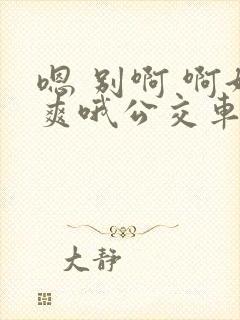 嗯 别啊 啊好
爽哦公交車
大静